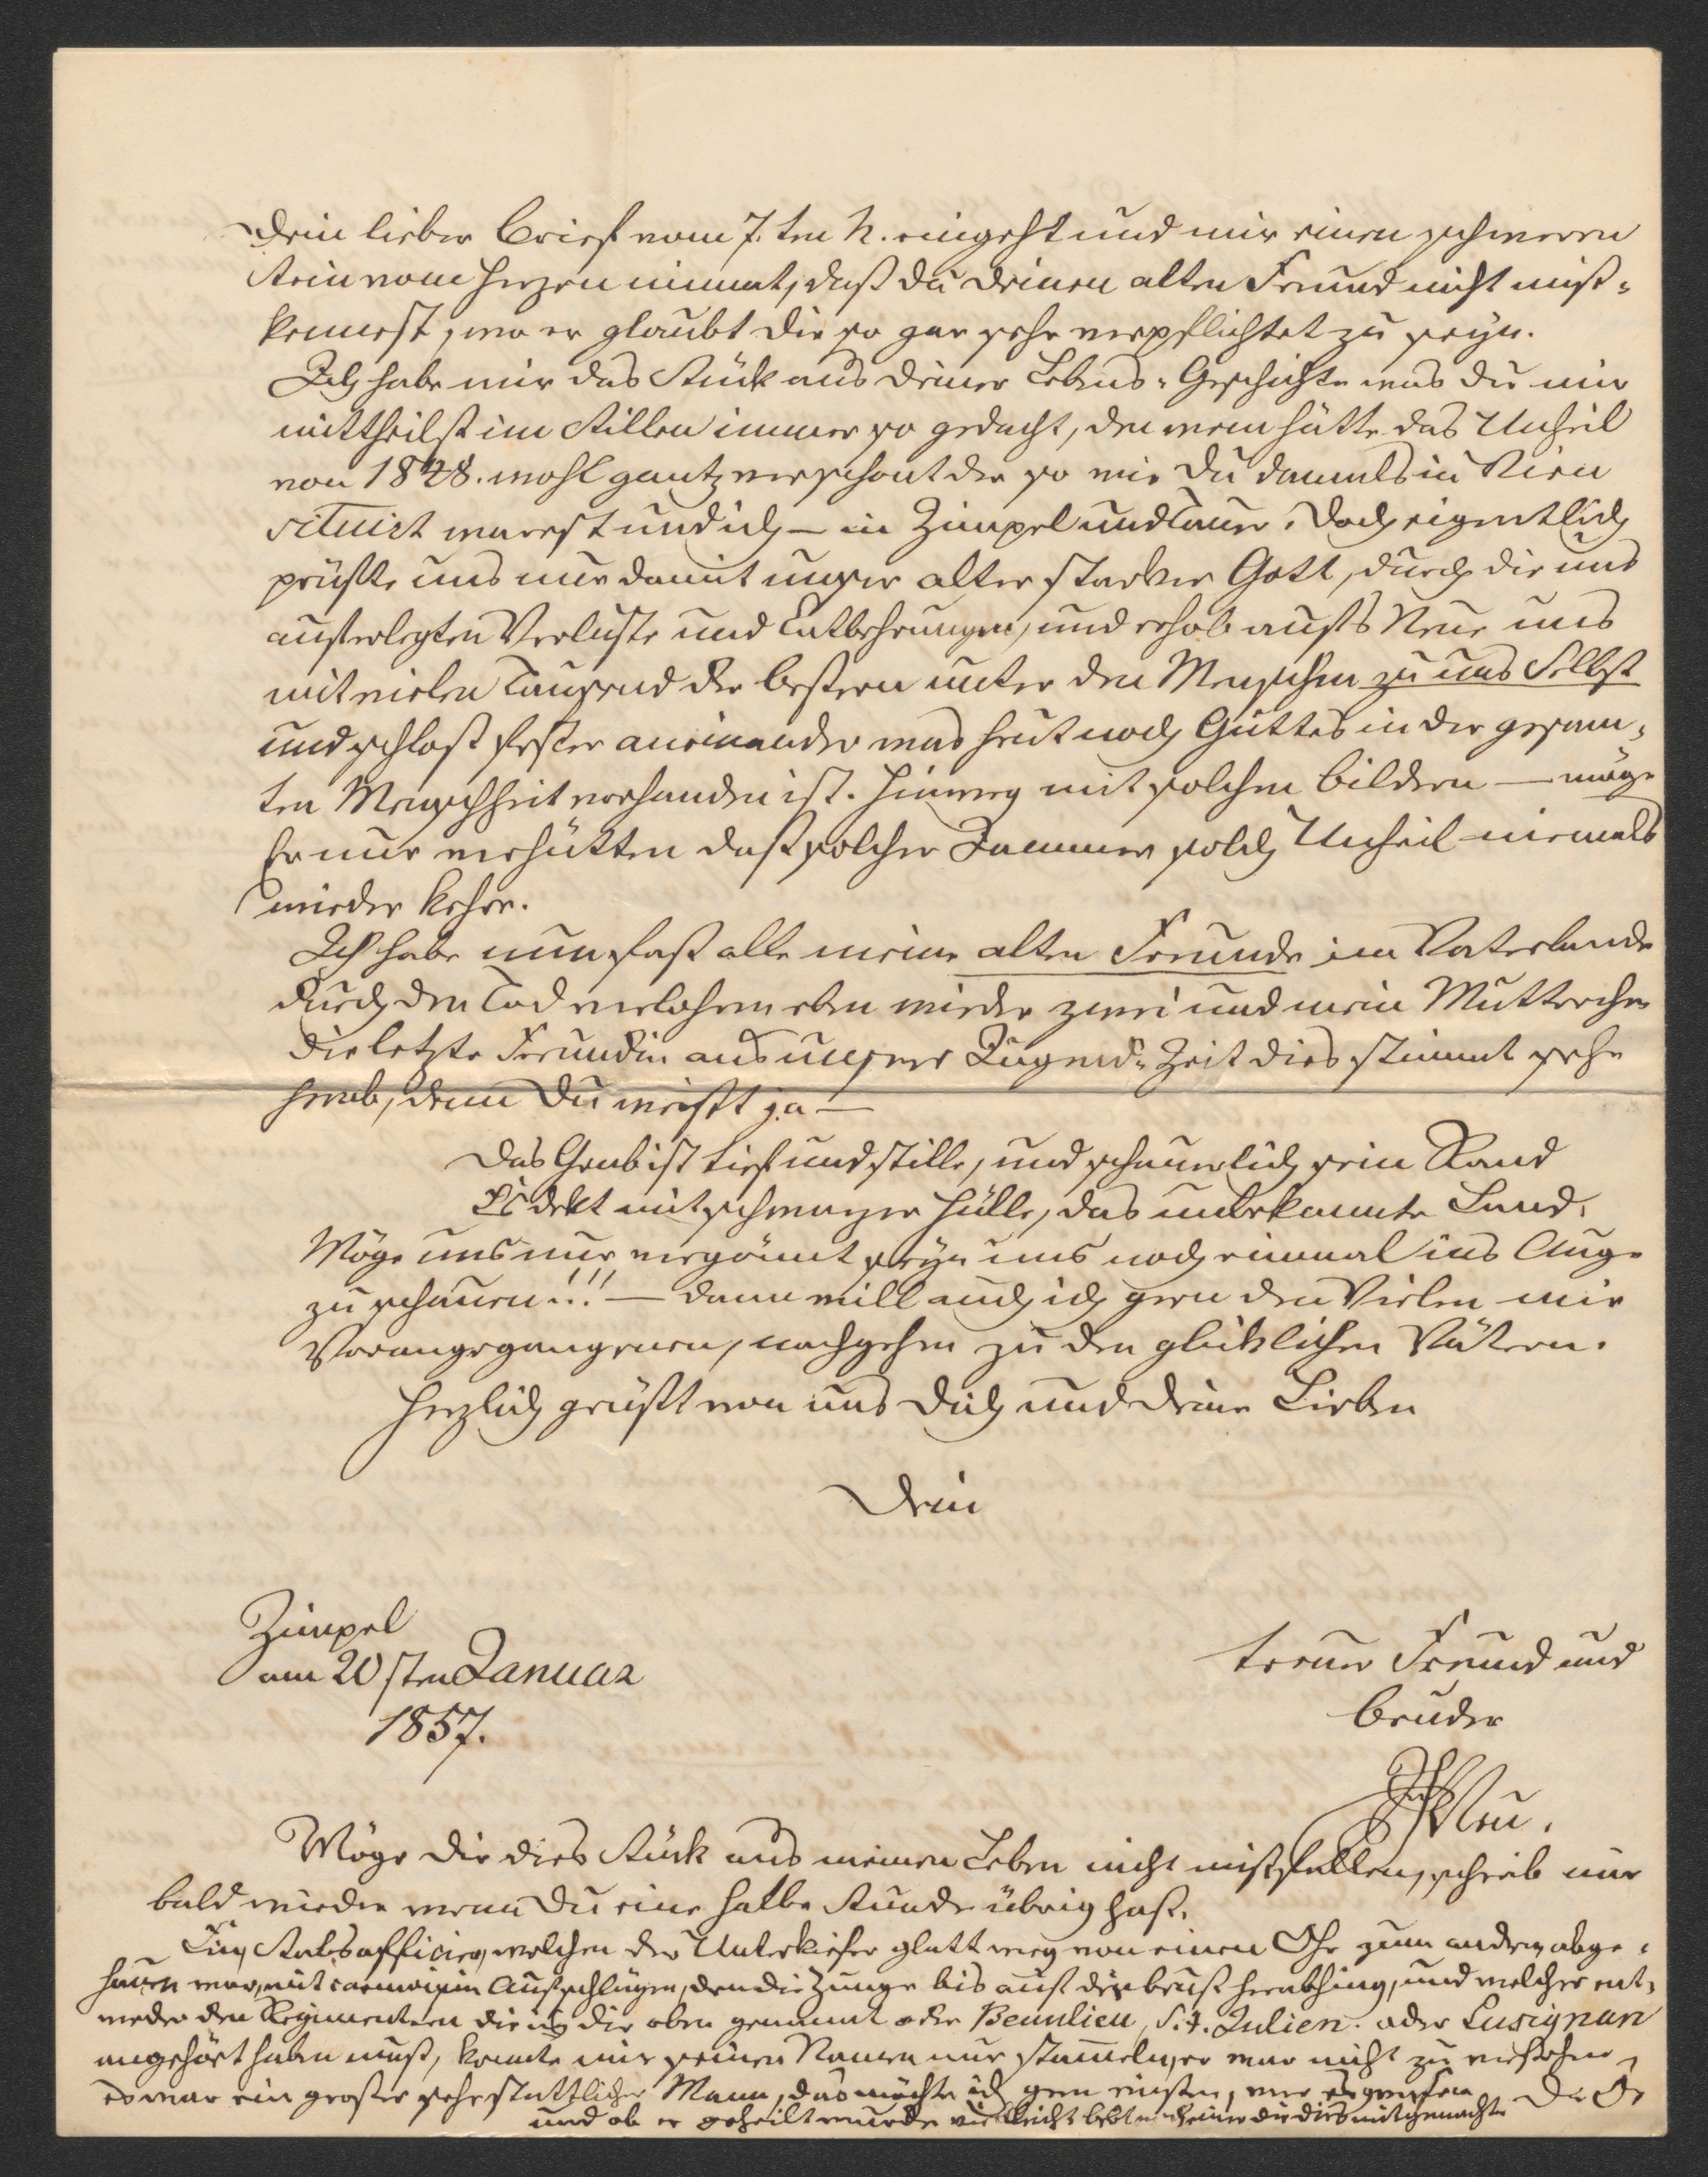 Dein lieber Brief vom 7. ten h. eingeht und mir einen schweren
Stein vom Herzen nimmt, daß du deinen alten Freund nicht miß-
kennest, wo er glaubt dir so gar sehr verpflichtet zu seyn.
Ich habe mir das Stück aus deiner Lebens-Geschichte was du mir
mittheilst im Stillen immer so gedacht, den wem hätte das Unheil
von 1848. wohl gantz verschont der so wie du damals in Wien
situirt warest und ich – in Zimpel und Tauer. Doch eigentlich
prüfte uns nur damit unser alter starker Gott, durch die uns
auferlegten Verluste und Entbehrungen, und erhob aufs Neue uns
mit vielen Tausend der bessern unter den Menschen zu uns Selbst
und schloß fester aneinander was heut noch Guttes in der gesam-
ten Menschheit vorhanden ist. Hinweg mit solchen Bildern – möge
Er nur verhütten daß solcher Jammer solch Unheil niemals
wieder kehre.
Ich habe nun fast alle meine alten Freunde im Vaterlande
durch den Tod verlohren eben wieder zwei und mein Mutterchen
die letzte Freundin aus unserer Jugend-Zeit dies stimmt sehr
herab, denn Du weißt ja –
Das Grab ist tief und stille, und schauerlich sein Rand
Es dekt mit schwarzer Hülle, das unbekannte Land.
Möge uns nur vergönnt seyn uns noch einmal ins Auge
zu schauen!!! – dann will auch ich gern den Vielen mir
Vorangegangenen, nachgehen zu den glücklichen Vätern.
Herzlich grüßt von uns dich und deine Lieben
Dein
Zimpel
am 20sten Januar
1857.
treuer Freund und
Bruder
Neu.
Möge dir dies Stück aus meinem Leben nicht mißfallen, schreib mir
bald wieder wenn Du eine halbe Stunde übrig hast.
Ein Stabsofficier, welchen der Unterkiefer glatt weg von einen Ohr zum andern abge-
hauen war, mit carmoisin Aufschlägen, dem die Zunge bis auf die Brust herabhing, und welcher ent-
weder den Regimentern die ich dir oben genannt oder Beaulieu, St. Julien. oder Lusignan
angehört haben muß, konnte mir seinen Namen nur stameln, er war nicht zu verstehen,
es war ein großer sehr stattlicher Mann, das möchte ich gern wißen, wer es gewesen
und ob er geheilt wurde vielleicht lebt noch einer der dies mitgemacht